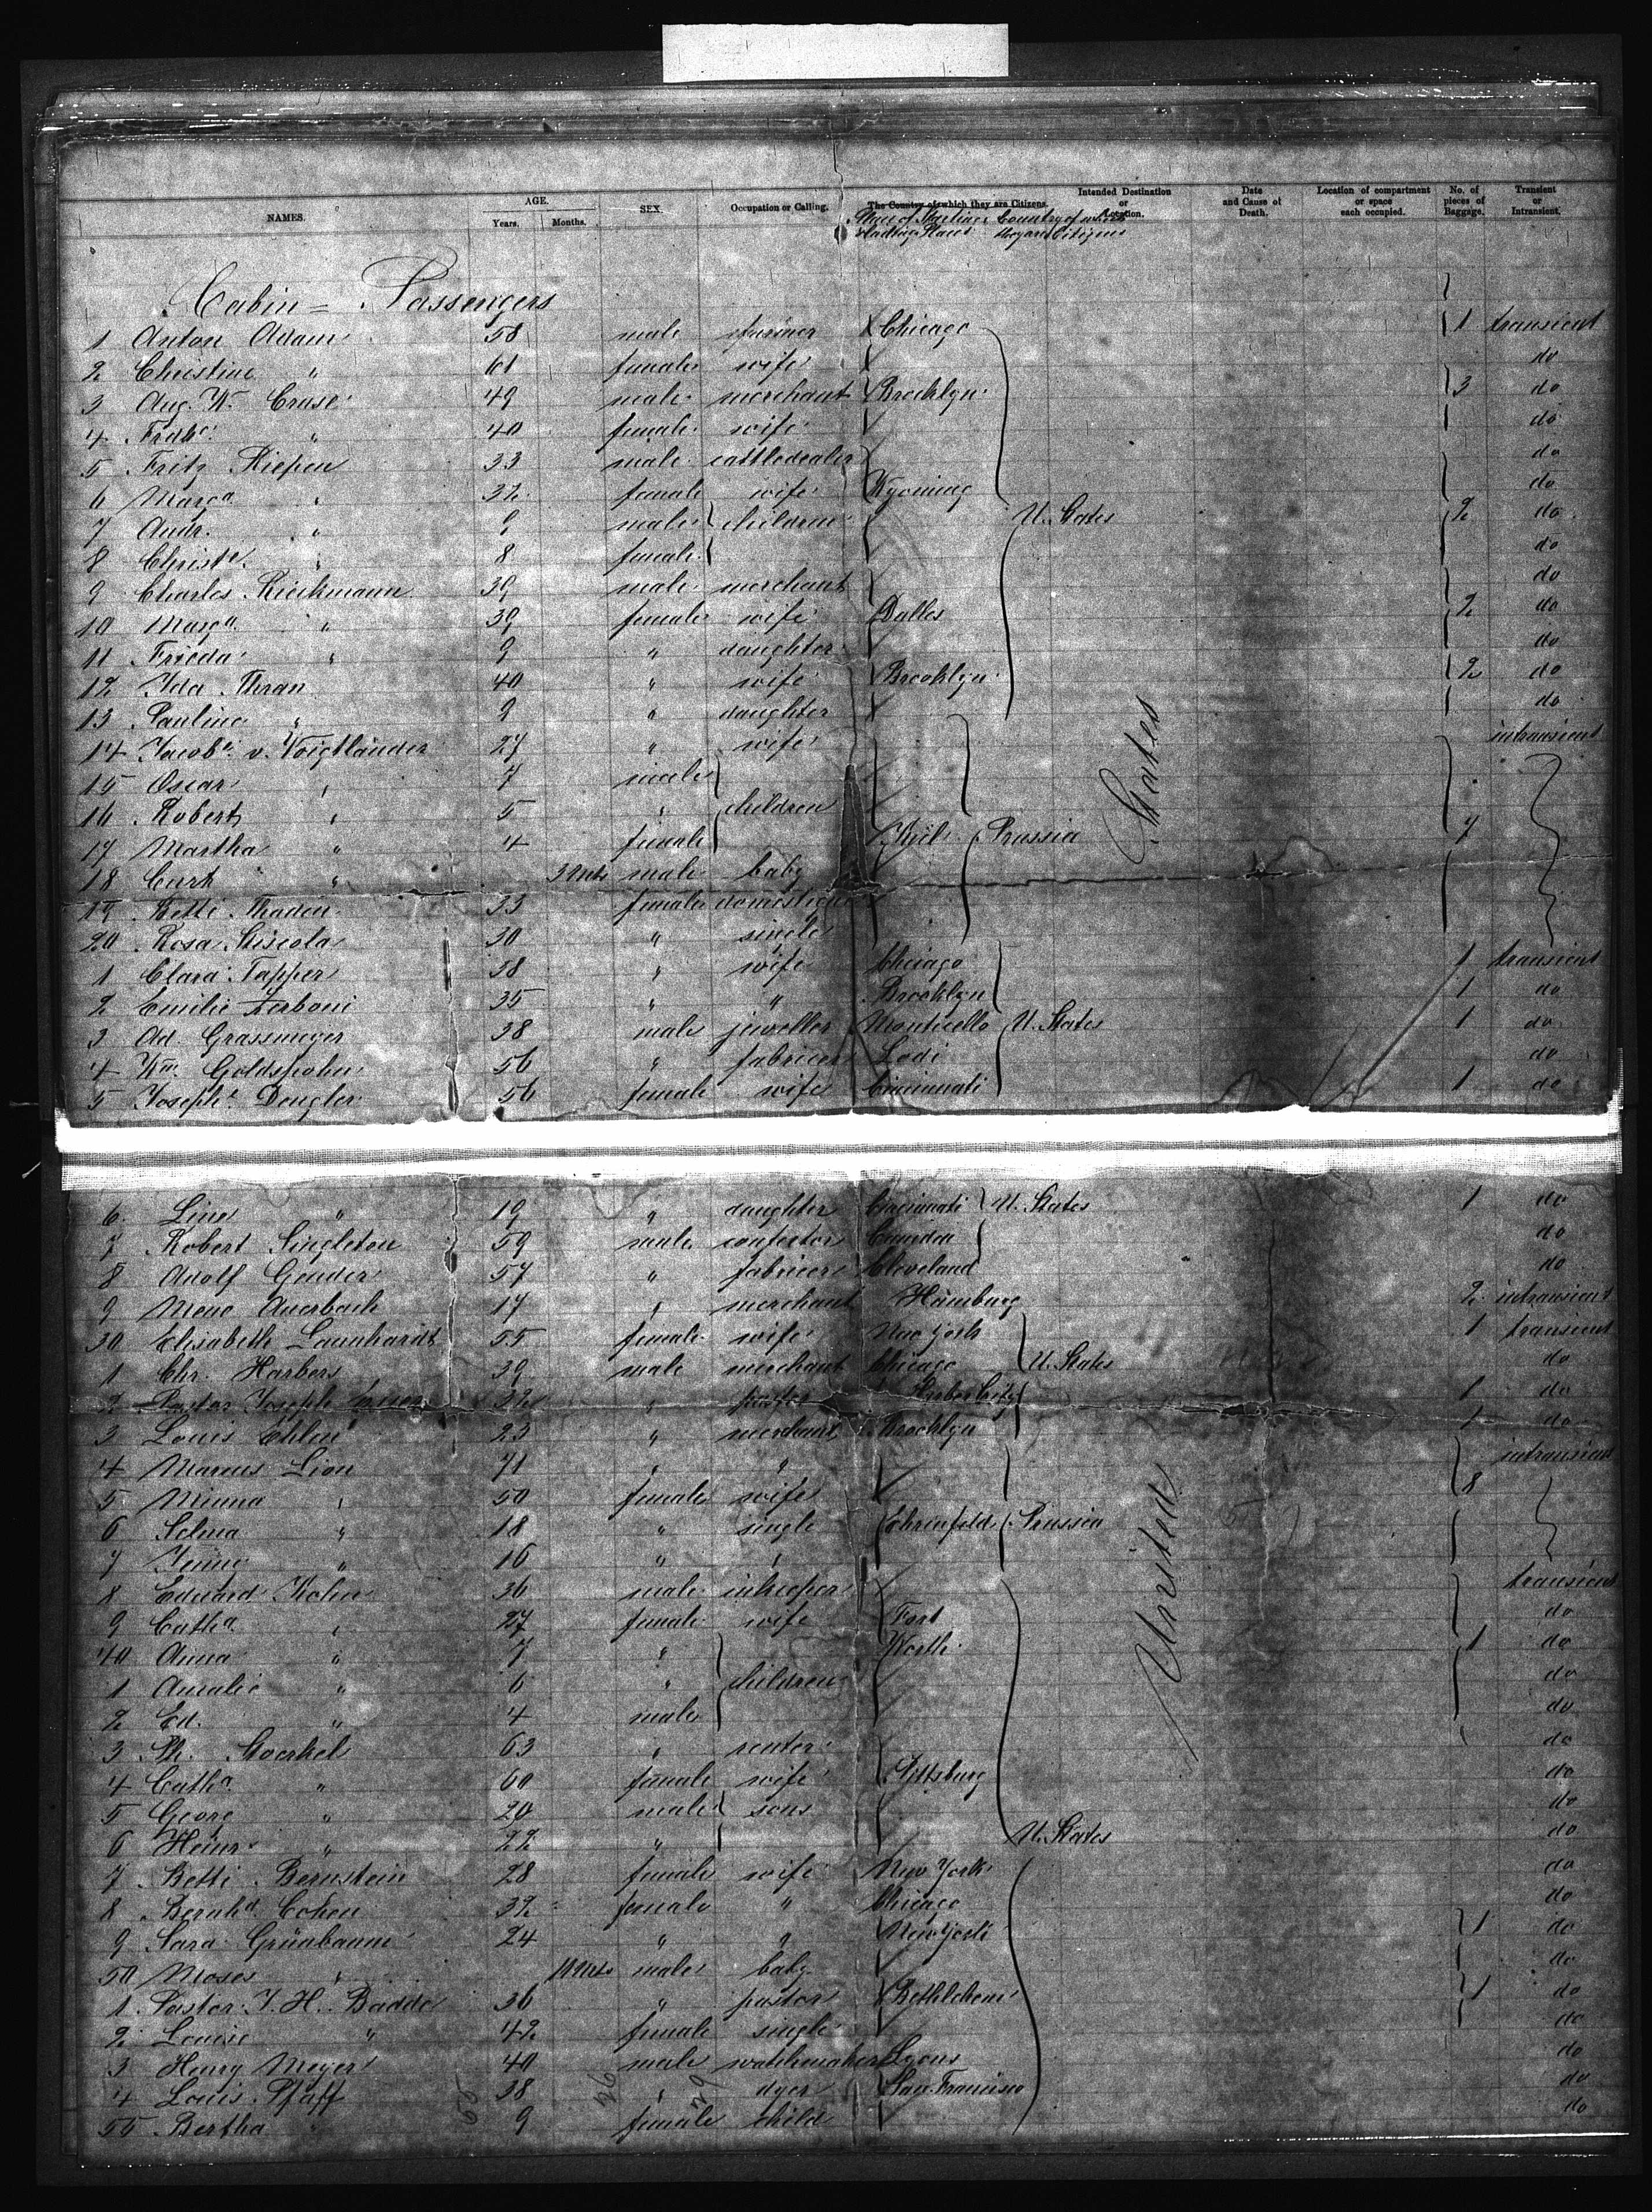 NAMES. AGE. Years. Months. SEX. Occupation or Calling. The Country of which they are Citizens. Intended Destination or Location. Date and Cause of Death. Location of compartment or space each occupied. No. of pieces of Baggage. Transient or Intransient.
Country of which they are Citizens
Cabin = Passengers
1 Anton Adam 58 male farmer Chicago 1 transient
2 Christine " 61 female wife do
3 Aug. W. Cruse 49 male merchant Brooklyn 3 do
4 Frdke " 40 female wife do
5 Fritz Riepen 33 male cattledealer do
6 Marga " 32 female wife Wyoming do
7 Andr. " 9 male children U. States 2 do
8 Christe " 8 female do
9 Charles Rieckmann 39 male merchant do
10 Marga " 39 female wife Dalles 2 do
11 Frieda " 9 " daughter do
12 Ida Theran 40 " wife Brooklyn 2 do
13 Pauline " 9 " daughter do
14 Jacobe v. Voigtländer 27 " wife intransient
15 Oscar " 7 male
16 Robert " 5 " children
17 Martha " 4 female Kiel Prussia 7
18 Curt " 3 Mts male baby
19 Betti Thaden 33 female domestique
20 Rosa 30 " single
1 Clara Tapper 58 " wife Chicago 1 transient
2 Emilie Zerboni 35 " " Brooklyn 1 do
3 Ad. Grassmeyer 38 male jeweller Monticello U. States 1 do
4 Wm. Goldspohn 56 " fabricer Lodi do
5 Josephe Dengler 56 female wife Cincinnati 1 do
6 Line " 19 " daughter Cincinnati U. States 1 do
7 Robert Singleton 59 male confector Camden do
8 Adolf Gender 57 " fabricer Cleveland do
9 Meno Auerbach 17 " merchant Hamburg 2 intransient
30 Elisabeth Launhardt 55 female wife New York 1 transient
1 Chr. Harbers 39 male merchant Chicago U. States do
2 Pastor Joseph 32 " pastor 1 do
3 Louis Ehlen 23 " merchant Brooklyn 1 do
4 Marcus Lion 71 " " intransient
5 Minna " 50 female wife 8
6 Selma " 18 " single Ehrenfeld Prussia
7 Jenny " 16 " "
8 Eduard Kohn 36 male inkeeper transient
9 Catha " 27 female wife Fort do
40 Anna " 7 " Worth 1 do
1 Amalie " 6 " children do
2 Ed. " 4 male do
3 Ph. Stoerkel 63 " renter do
4 Catha " 60 female wife Pittsburg do
5 Georg " 20 male sons do
6 Heinr. " 22 " U. States do
7 Betti Bernstein 28 female wife New York do
8 Bernhd Cohen 32 female " Chicago do
9 Sara Grünbaum 24 " " New York 1 do
50 Moses " male baby do
1 Pastor J. H. Badde 36 " pastor Bethlehem 1 do
2 Louise " 42 female single do
3 Henry Meyer 40 male watchmaker Lyons do
4 Louis Pfaff 38 " dyer San Francisco do
55 Bertha " 9 female child do
United States